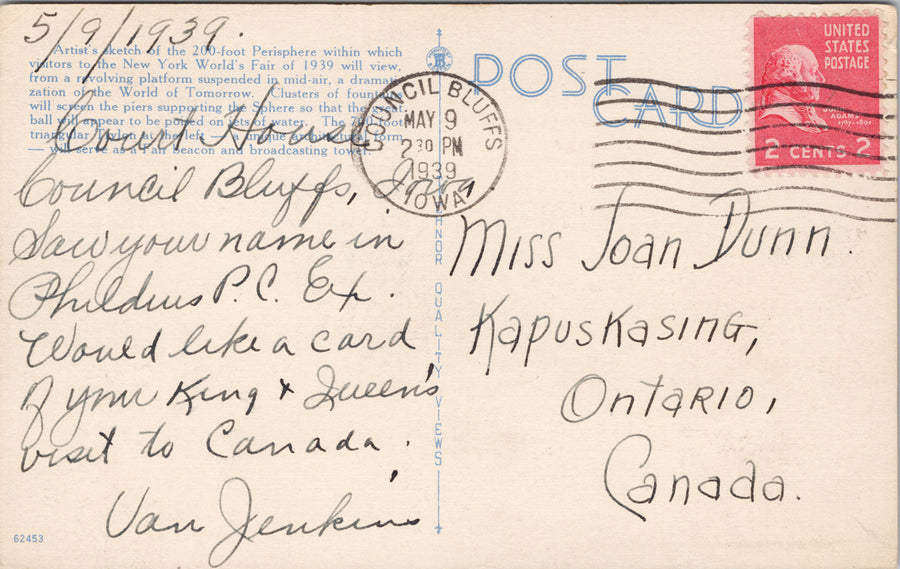 5/9/1939.
Artist's sketch of the 200-foot Perisphere within which
visitors to the New York World's Fair of 1939 will view,
from a revolving platform suspended in mid-air, a dramati-
zation of the World of Tomorrow. Clusters of fountains
will screen the piers supporting the Sphere so that the great
ball will appear to be poised on jets of water. The 700-foot
triangular Pylon at the left — a unique architectural form
— will serve as a Fair beacon and broadcasting tower.
Court House
Council Bluffs, Iowa
Saw your name in
Childrens P.C. Ex.
Would like a card
of your King + Queen's
visit to Canada.
Van Jenkins
62453
POST
CARD
COUNCIL BLUFFS
MAY 9
2 30 PM
1939
IOWA
UNITED
STATES
POSTAGE
ADAMS
2 CENTS 2
QUALITY VIEWS
Miss Joan Dunn.
Kapuskasing,
Ontario,
Canada.